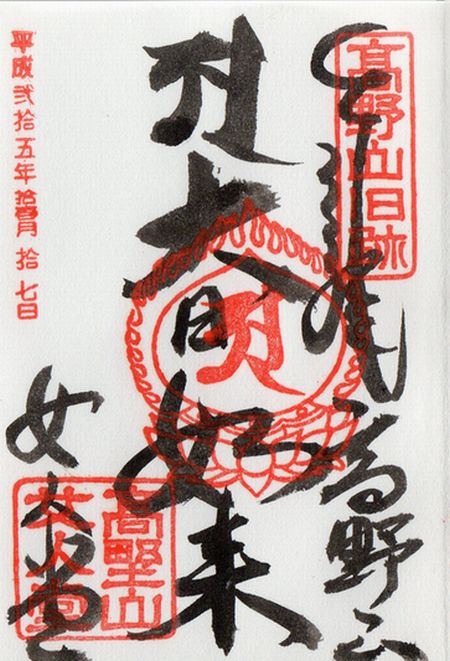 髙野山旧跡
高野山
大日如来
女人堂
高野山
女人堂
平成弐拾五年拾壹月拾七日